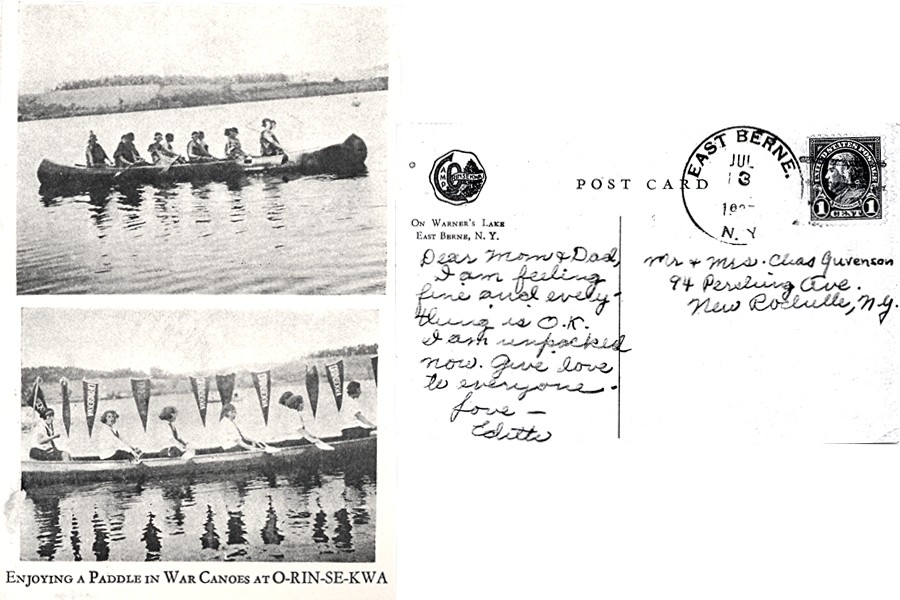 ENJOYING A PADDLE IN WAR CANOES AT O-RIN-SE-KWA
CAMP
ON WARNER'S LAKE
EAST BERNE, N. Y.
POST CARD
EAST BERNE.
JUL
13
N. Y
UNITED STATES POSTAGE
1 CENT 1
Dear Mom & Dad,
I am feeling
fine and every-
thing is O.K.
I am unpacked
now. Give love
to everyone.
Love -
Mr & Mrs. Chas
94 Pershing Ave.
New Rochelle, N.Y.